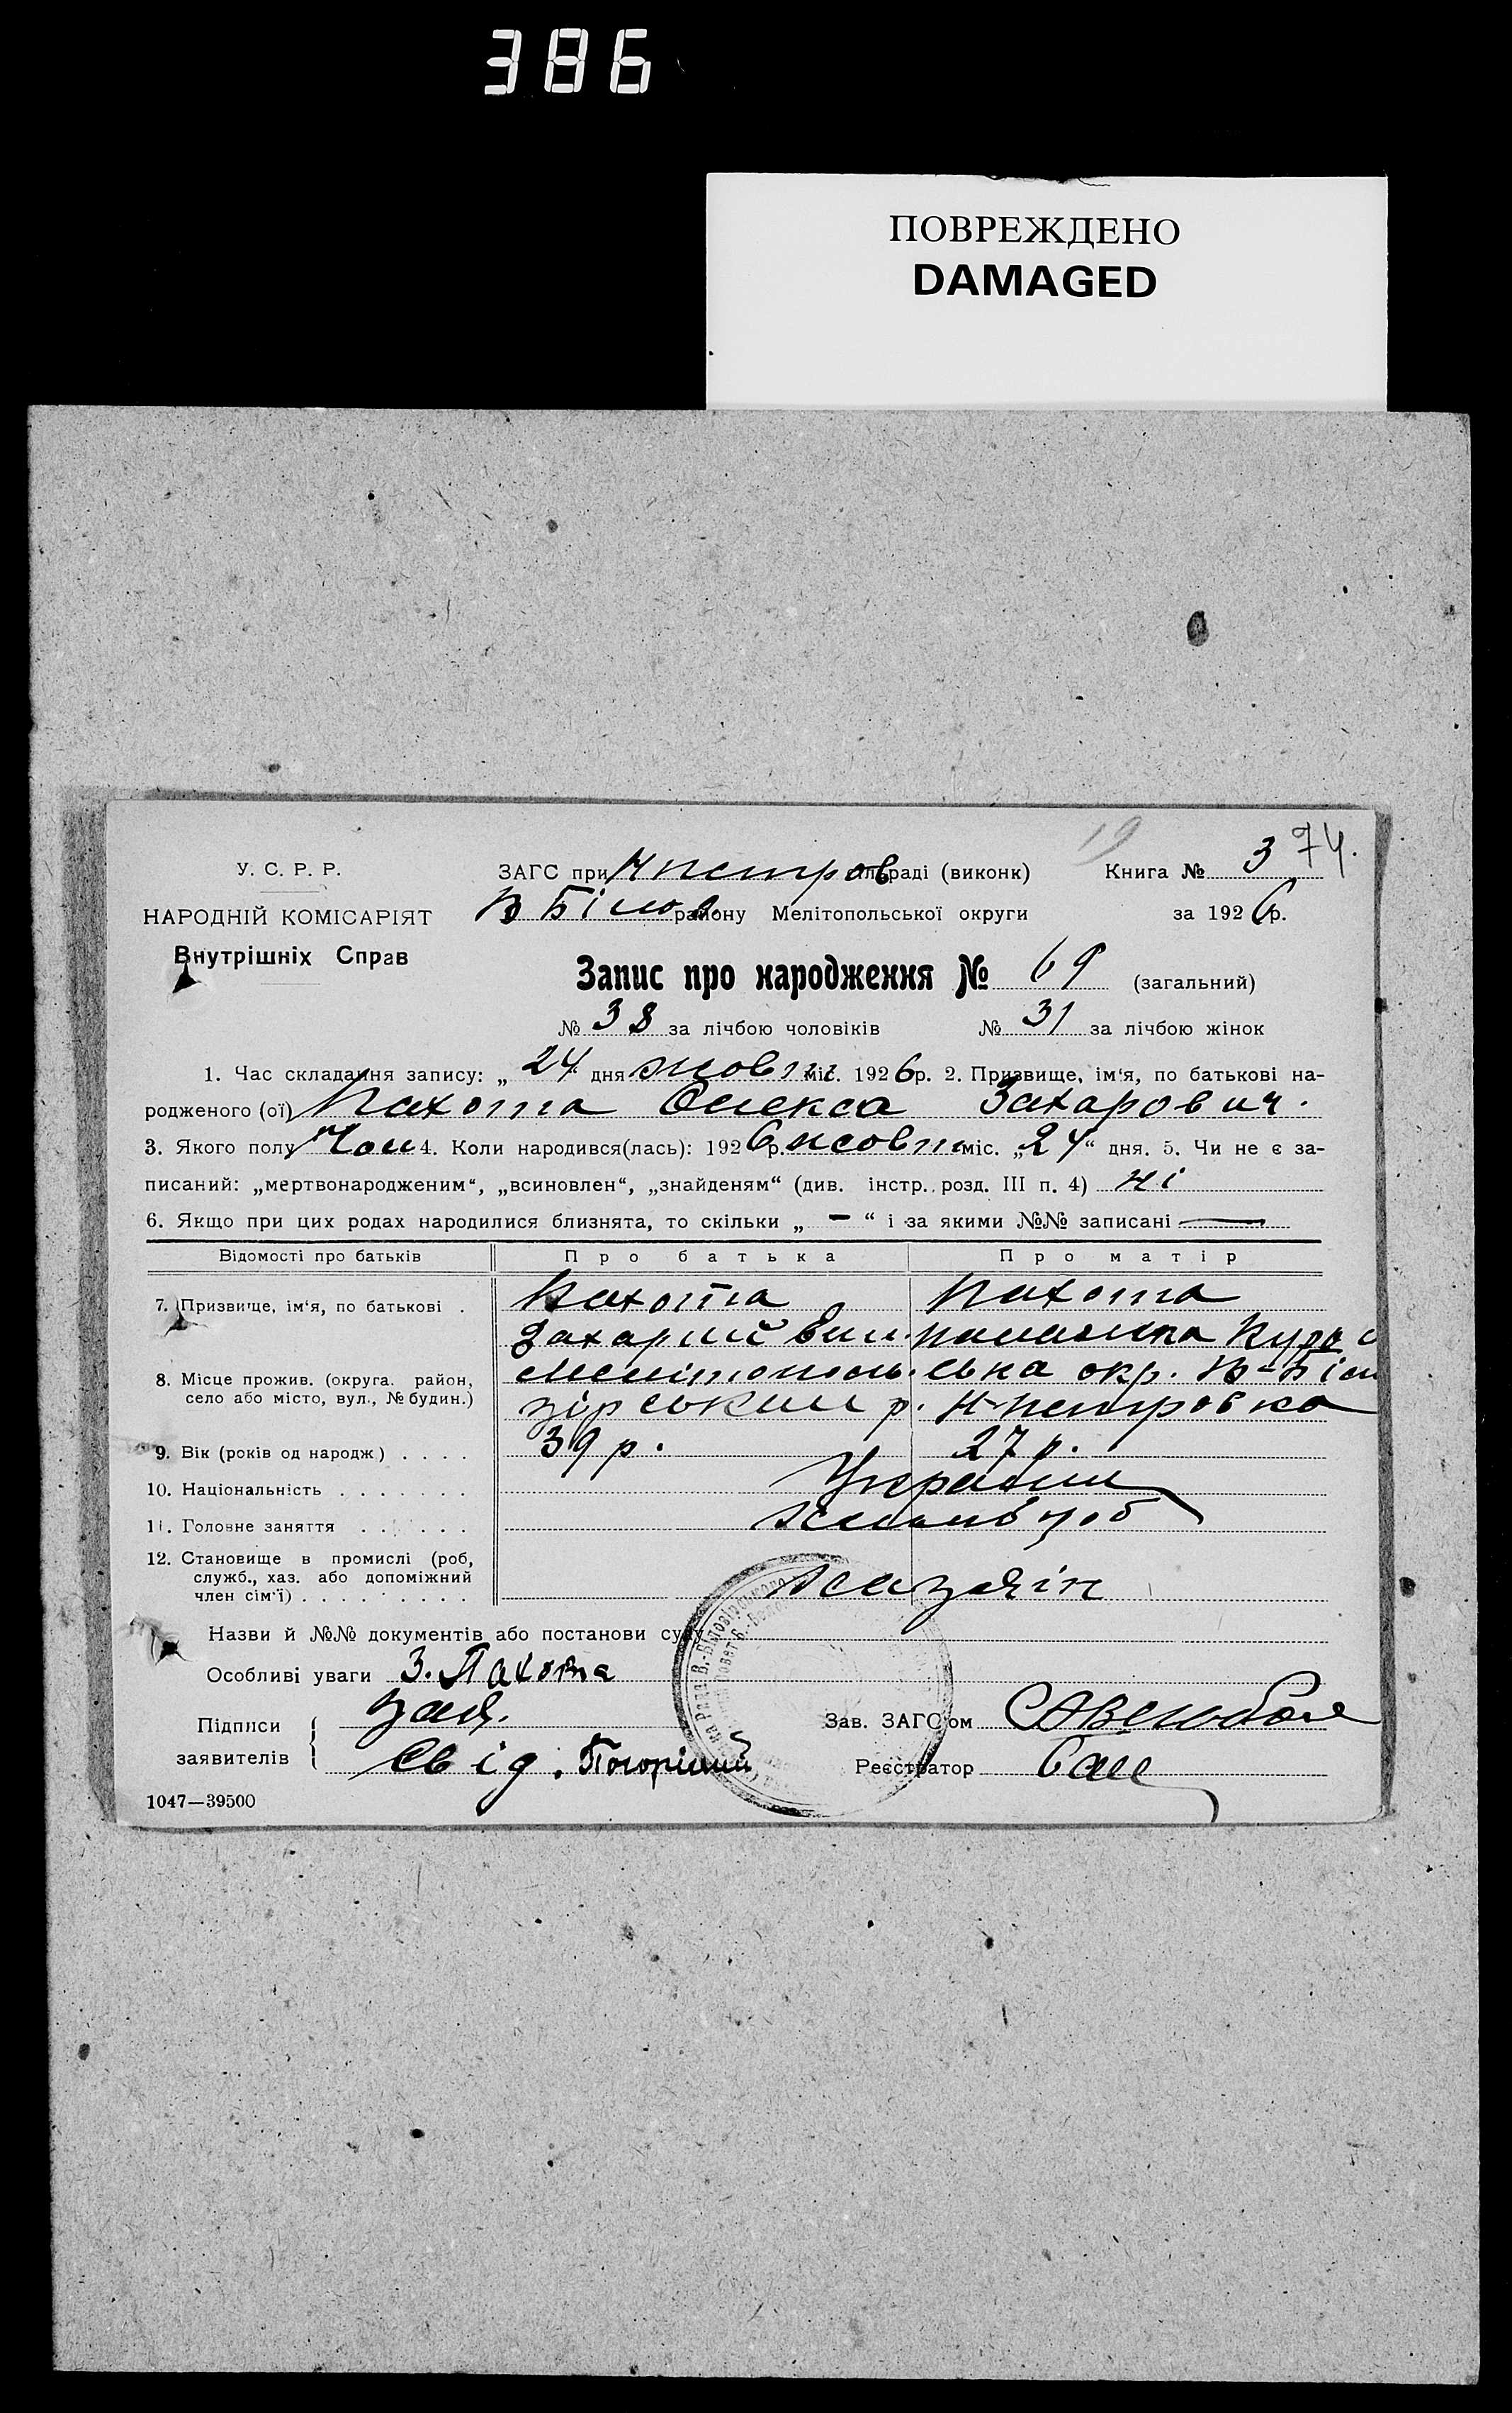 386
ПОВРЕЖДЕНО
DAMAGED
19 374.
У. С. Р. Р. ЗАГС при Нпетров раді (виконк) Книга № 3
НАРОДНІЙ КОМІСАРІЯТ В Білоз. району Мелітопольської округи за 1926р.
Внутрішніх Справ
Запис про народження № 69 (загальний)
№ 38 за лічбою чоловіків № 31 за лічбою жінок
1. Час складання запису: „24 дня жовтн міс. 1926р. 2. Призвище, ім'я, по батькові на-
родженого (ої) Пахота Олекса Захарович.
3. Якого полу Чол 4. Коли народився(лась): 1926р. жовтн міс. „24“ дня. 5. Чи не є за-
писаний: „мертвонародженим“, „всиновлен“, „знайденям“ (див. інстр., розд. III п. 4) ні
6. Якщо при цих родах народилися близнята, то скільки „ – “ і за якими №№ записані —
Відомості про батьків Про батька Про матір
7. Призвище, ім'я, по батькові . Пахота Пахота
Захарий
8. Місце прожив. (округа. район, Мелітополь. ська окр. В-Біл
село або місто, вул., № будин.) зірський р. Н-петровка
9. Вік (років од народж) . . . . 39 р. 27 р.
10. Національність . . . . . . . Україн
11. Головне заняття . . . . . . хлібороб
12. Становище в промислі (роб,
служб., хаз. або допоміжний
член сім'ї) . . . . . . . . хазяїн
Назви й №№ документів або постанови суду
Особливі уваги З. Пахота
Підписи заяв. Зав. ЗАГС'ом
заявителів Свід. Погорілий Реєстратор
1047—39500